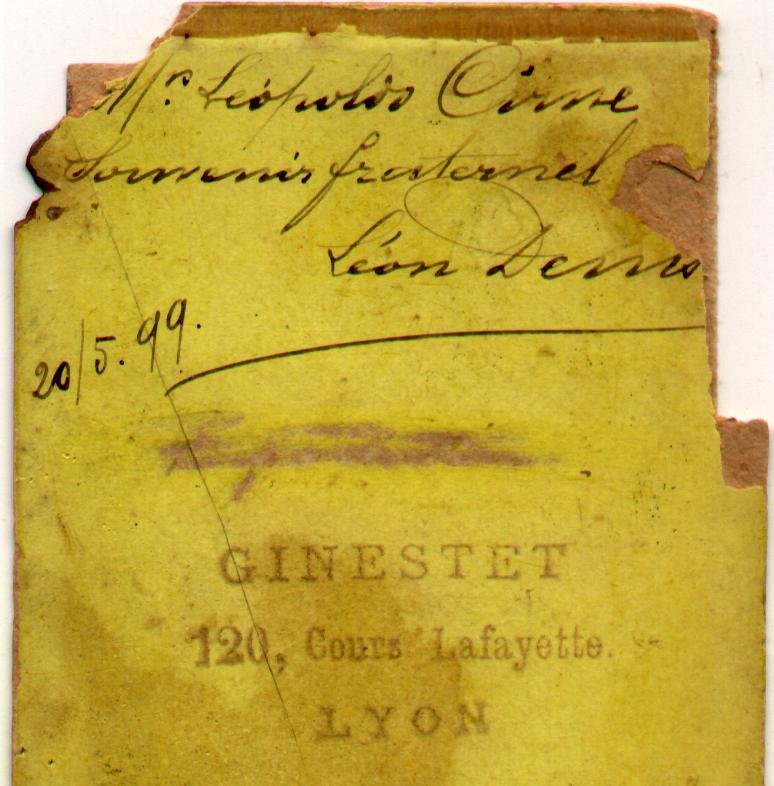 Mr. Léopoldo Cirne
Souvenir fraternel
Léon Denis
20/5.99.
GINESTET
120, Cours Lafayette.
LYON